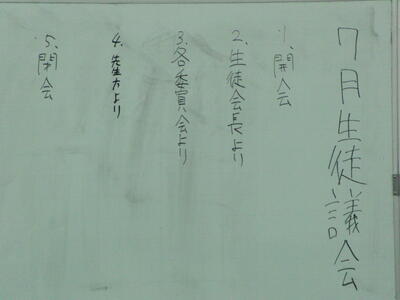 7月生徒議会
1、開会
2、生徒会長より
3、各委員会より
4、先生方より
5、閉会